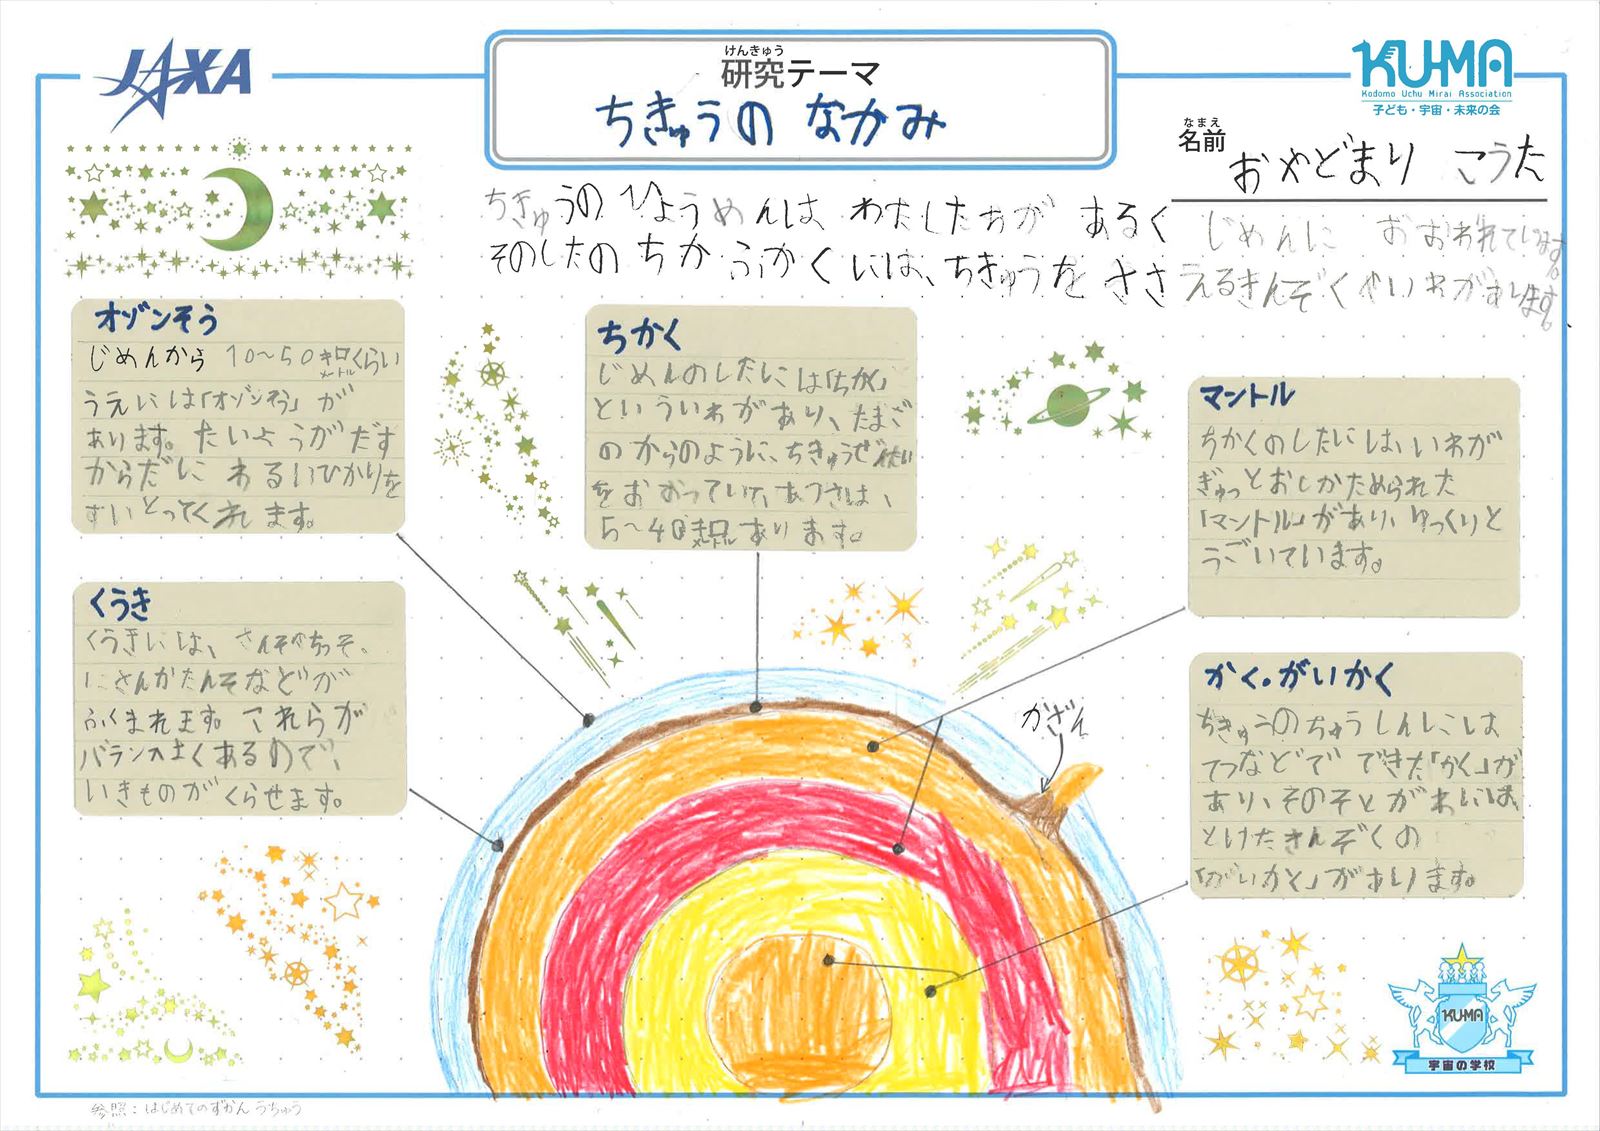 JAXA
けんきゅう
研究テーマ
ちきゅうの なかみ
KUMA
Kodomo Uchu Mirai Association
子ども・宇宙・未来の会
なまえ
名前
おやどまり こうた
ちきゅうの ひょうめんは わたしたちが あるく じめんに おおわれています。
そのしたの ちかふかくには、ちきゅうを ささえるきんぞくやいわがあります。
オゾンそう
じめんから 10～50キロメートルくらい
うえには「オゾンそう」が
あります。たいようがだす
からだに わるいひかりを
すいとってくれます。
くうき
くうきには、さんそやちっそ、
にさんかたんそなどが
ふくまれます。これらが
バランスよくあるので、
いきものがくらせます。
ちかく
じめんのしたには「ちかく」
といういわがあり、たまご
のからのように、ちきゅうぜんたい
をおおっていて、あつさは、
5～40キロメートルあります。
マントル
ちかくのしたには、いわが
ぎゅっとおしかためられた
「マントル」があり、ゆっくりと
うごいています。
かく・がいかく
ちきゅうのちゅうしんには
てつなどで できた「かく」が
あり、そのそとがわには、
とけたきんぞくの
「がいかく」があります。
かざん
KUMA
宇宙の学校
参照：はじめてのずかん うちゅう